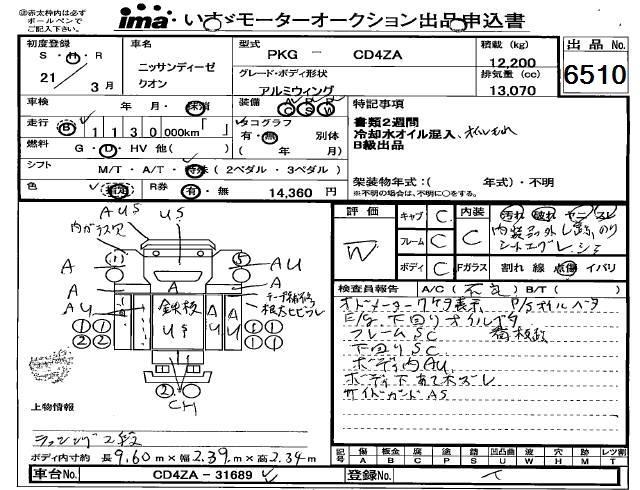 注赤太枠内は必ず
ボールペンで
ご記入下さい。
ima いすゞモーターオークション出品申込書
初度登録 車名 型式 積載 (kg) 出品No.
S・H・R 21 3月
ニッサンディーゼル
クオン
PKG - CD4ZA
12,200
6510
グレード・ボディ形状 排気量 (cc)
アルミウィング 13,070
車検 年 月・抹消 装備 A R C S W
特記事項
書類2週間
冷却水オイル混入、
B級出品
走行 B 1130 000km「 」
タコグラフ
有・無 別体
( 年 月)
燃料 G・D・HV 他( )
シフト M/T・A/T・特殊 (2ペダル・3ペダル)
架装物年式:( 年式)・不明
※不明の場合は、不明に○をする。
色 R券 有・無 14,360 円
評価 W
キャブ C
フレーム C
ボディ C
内装 C
汚れ 破れ ヤニ スレ
シートコゲレシミ
Fガラス 割れ 線 点傷 イバリ
AUS US
内ガラス穴
A AU
A A A
AU 鉄板 US A U A U
テープ補修
1 1 1 1
2 2 1 1
2 2
CH
検査員報告 A/C(不良) B/T( )
オドメーター7ケタ表示 P/Sオイルベタ
E/g 下回りオイルベタ
フレームSC 看板跡
下回りSC
ボディ内AU
ボディ下あて木ズレ
サイドガードAS
上物情報
ラッシング2段
ボディ内寸約 長9.60m×幅2.39m×高2.34m
記号 傷 A 板金 B 腐 C 塗 P 錆 S 凹凸曲 U 波 W 穴 H 跡 M 汚 T レツ割
車台No. CD4ZA-31689 登録No.